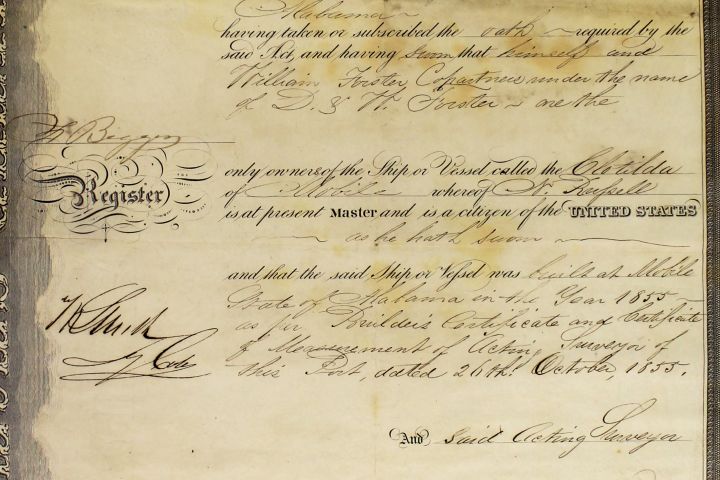 Alabama
having taken or subscribed the oath required by the
said Act, and having sworn that himself and
William Foster Copartners under the name
of D. & W. Foster are the
Register
only owners of the Ship or Vessel called the Clotilda
of Mobile whereof N. Russell
is at present Master and is a citizen of the UNITED STATES
as he hath sworn
and that the said Ship or Vessel was built at Mobile
State of Alabama in the Year 1855
as per Builders Certificate and Certificate
of Measurement of Acting Surveyor of
this Port, dated 26th. October, 1855.
And said Acting Surveyor